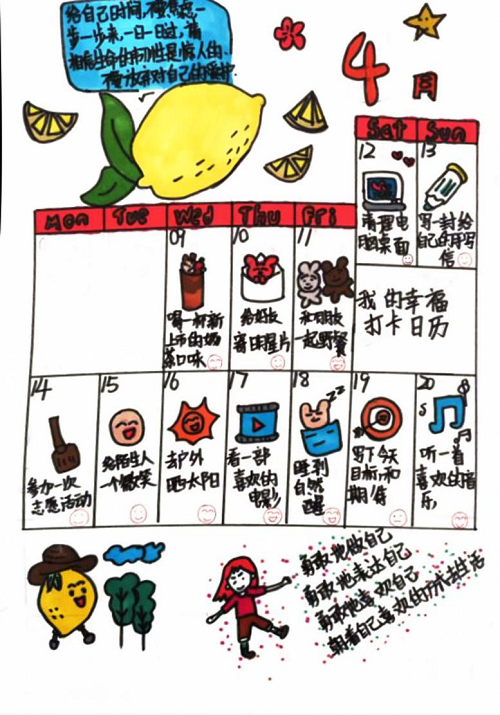 给自己时间,不要焦虑,一
步一步来,一日一日过,请
相信生命的韧性是惊人的、
不要放弃对自己的爱护.
4月
Sat Sun
12 13
清理电
脑桌面
写一封给
自己的手写
信
Mon Tue Wed Thu Fri
09 10 11
喝一杯新
上市的奶
茶口味
给好友
寄明星片
和朋友
一起野餐
我的幸福
打卡日历
14 15 16 17 18 19 20
参加一次
志愿活动
给陌生人
一个微笑
去户外
晒太阳
看一部
喜欢的
电影
zz
睡到
自然
醒
写下今天
目标和
期待
听一首
喜欢的音
乐
勇敢地做自己
勇敢地表达自己
勇敢地喜欢自己
朝着自己喜欢的方式去生活